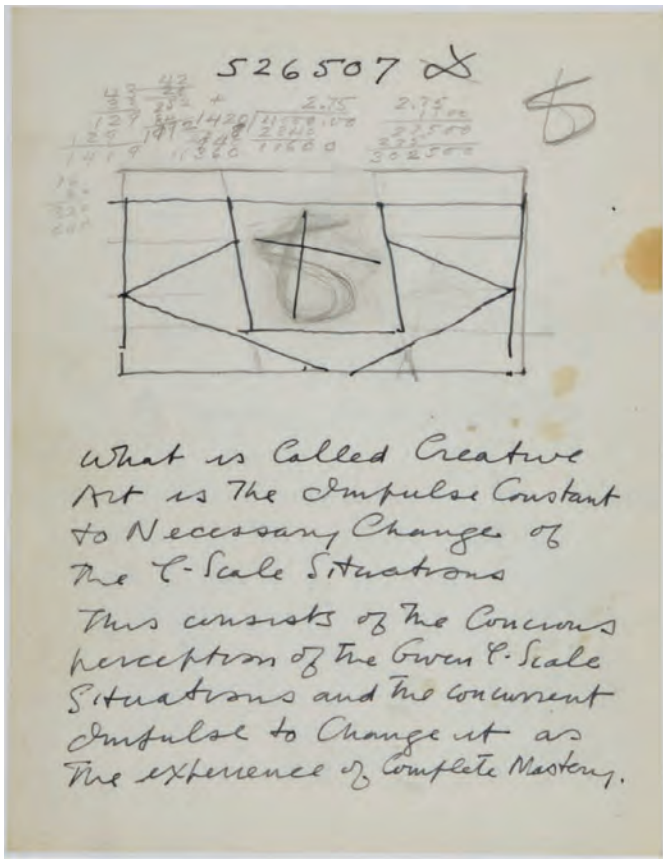 526507
42
2.75
2.75
129
1420
4000.00
1100
2840
27500
1419
11360
11600
302500
What is Called Creative
Art is The Impulse Constant
to Necessary Change of
The Y-Scale Situations
This consists of The Concious
perception of The Given Y-Scale
Situations and The concurrent
Impulse to Change it as
The experience of Complete Mastery.